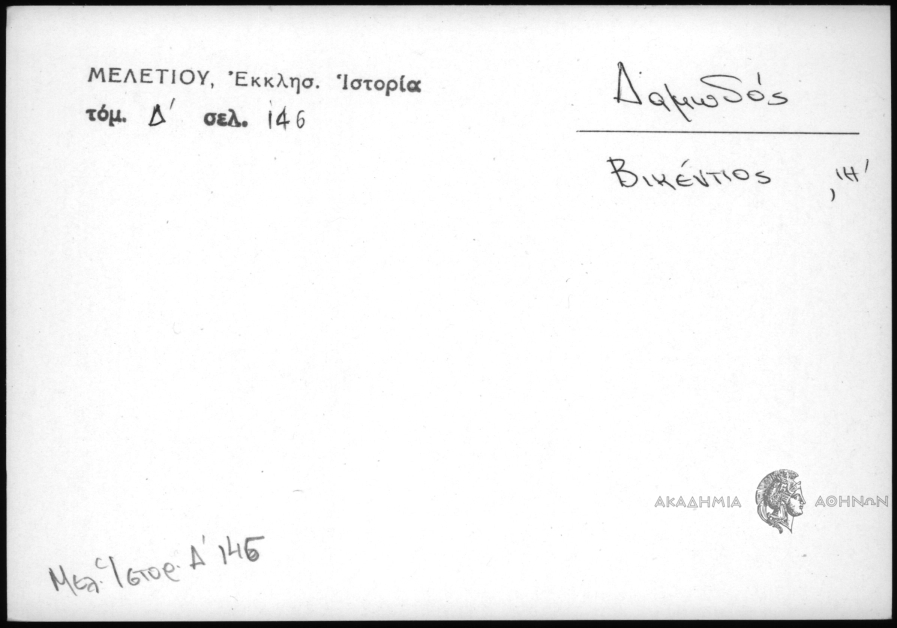 ΜΕΛΕΤΙΟΥ, Ἐκκλησ. Ἱστορία
τόμ. Δ' σελ. 146
Δαμωδός
Βικέντιος ,ιη'
ΑΚΑΔΗΜΙΑ ΑΘΗΝΩΝ
Μελ. Ἱστορ. Δ' 146